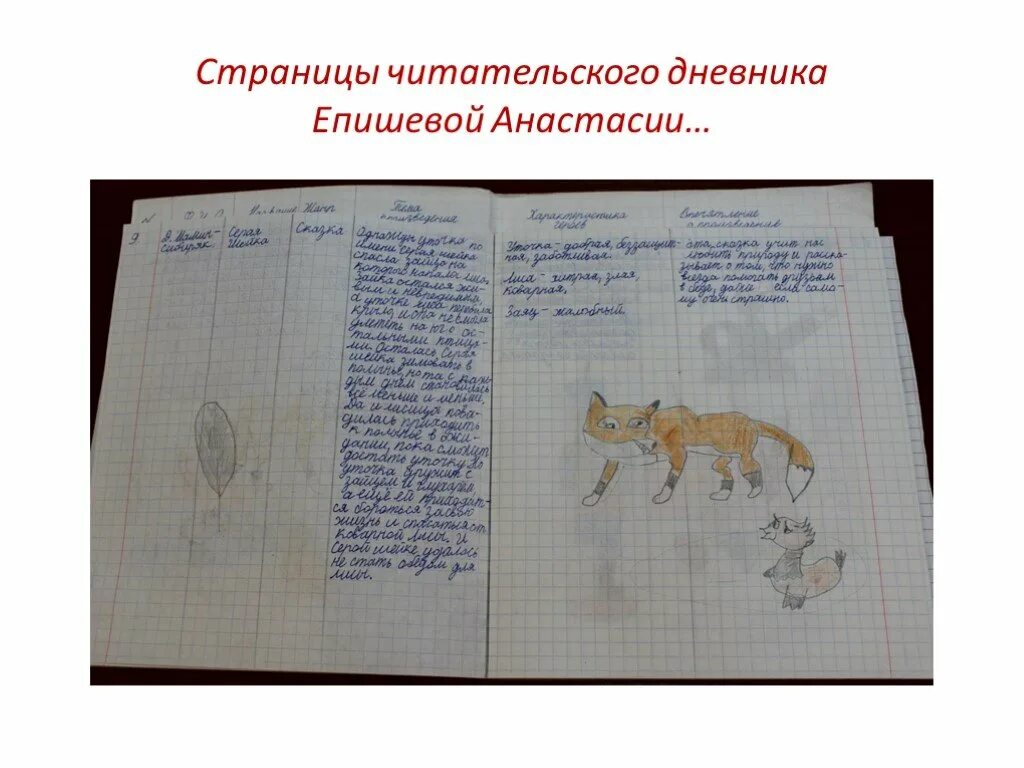 Страницы читательского дневника
Епишевой Анастасии…
№ Ф И О Название Жанр Тема
произведения
9. Д. Мамин-
Сибиряк
Серая
Шейка
Сказка
Однажды уточка по
имени серая шейка
спасла зайца на
которого напала лиса.
Зайка остался жи-
вым и невредимым,
а уточке лиса перебила
крыло, и она не смогла
улететь на юг с ос-
тальными птица-
ми. Осталась Серая
шейка зимовать в
полынье, но та с каж-
дым днём становилась
всё меньше и меньше.
Да и лисица пова-
дилась приходить
к полынье в ожи-
дании, пока сможет
достать уточку. Но
уточка дружит с
зайцем и глухарём
а ещё ей приходит-
ся бороться за свою
жизнь и спасаться от
коварной лисы. И
Серой шейке удалось
не стать обедом для
лисы.
Характеристика
героев
Уточка - добрая, беззащит-
ная, заботливая.
Лиса - хитрая, злая,
коварная,
Заяц - жалобный.
Впечатление
о произведении
эта сказка учит нас
любить природу и расска-
зывает о том, что нужно
всегда помогать друзьям
в беде, даже если само-
му очень страшно.